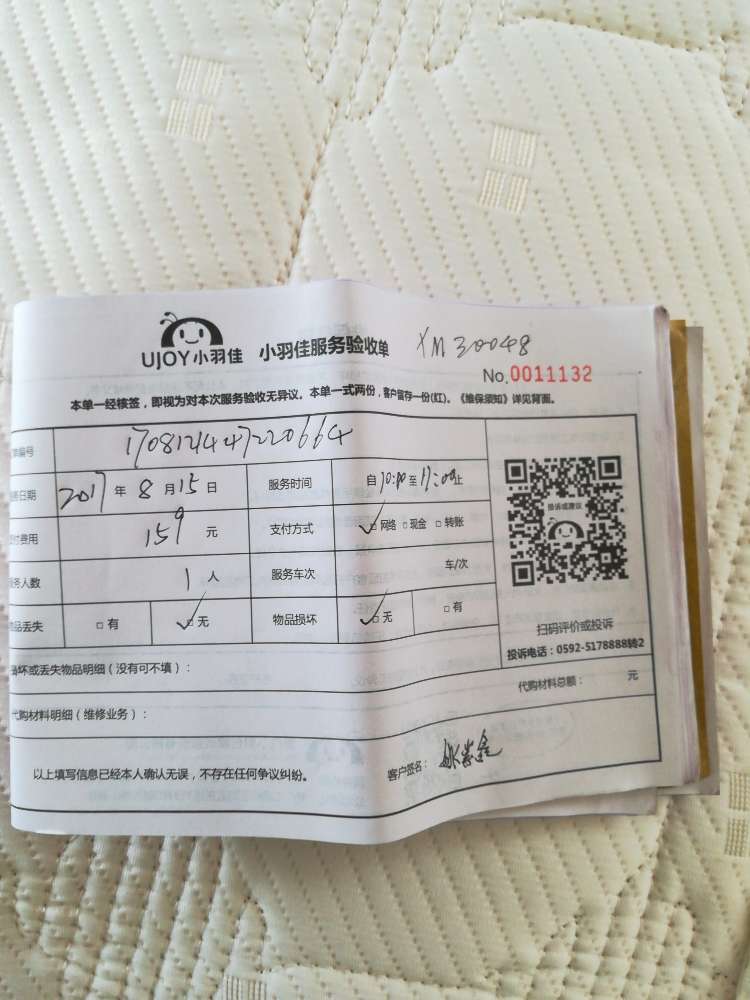 UJOY小羽佳 小羽佳服务验收单 XM30048
No.0011132
本单一经核签，即视为对本次服务验收无异议。本单一式两份，客户留存一份(红)。《维保须知》详见背面。
单编号 1708121447220664
务日期 2017 年 8 月 15 日 服务时间 自 10:00 至 17:00 止
付费用 159 元 支付方式 ✓□网络 □现金 □转账
务人数 1 人 服务车次 车/次
品丢失 □有 ✓□无 物品损坏 ✓□无 □有
投诉或建议
扫码评价或投诉
投诉电话：0592-5178888转2
损坏或丢失物品明细（没有可不填）：
代购材料总额： 元
代购材料明细（维修业务）：
以上填写信息已经本人确认无误，不存在任何争议纠纷。 客户签名：